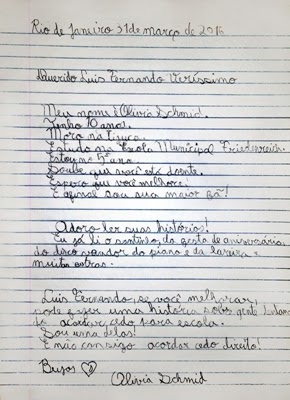 Rio de Janeiro 31 de março de 2016
Querido Luis Fernando Veríssimo
Meu nome é Olivia Schmid.
Tenho 10 anos.
Moro na tijuca.
Estudo na Escola Municipal Friedenreich.
Estou no 5º ano.
Soube que você está doente.
Espero que você melhore!
E afinal sou sua maior fã!
Adoro ler suas histórias!
Eu já li a do festa de aniversário,
do disco voador do piano e da
muitas outras.
Luis Fernando, se você melhorar,
pode fazer uma história sobre gente
de acordar cedo para escola.
Sou uma delas!
E não consigo acordar cedo direito!
Beijos
Olivia Schmid